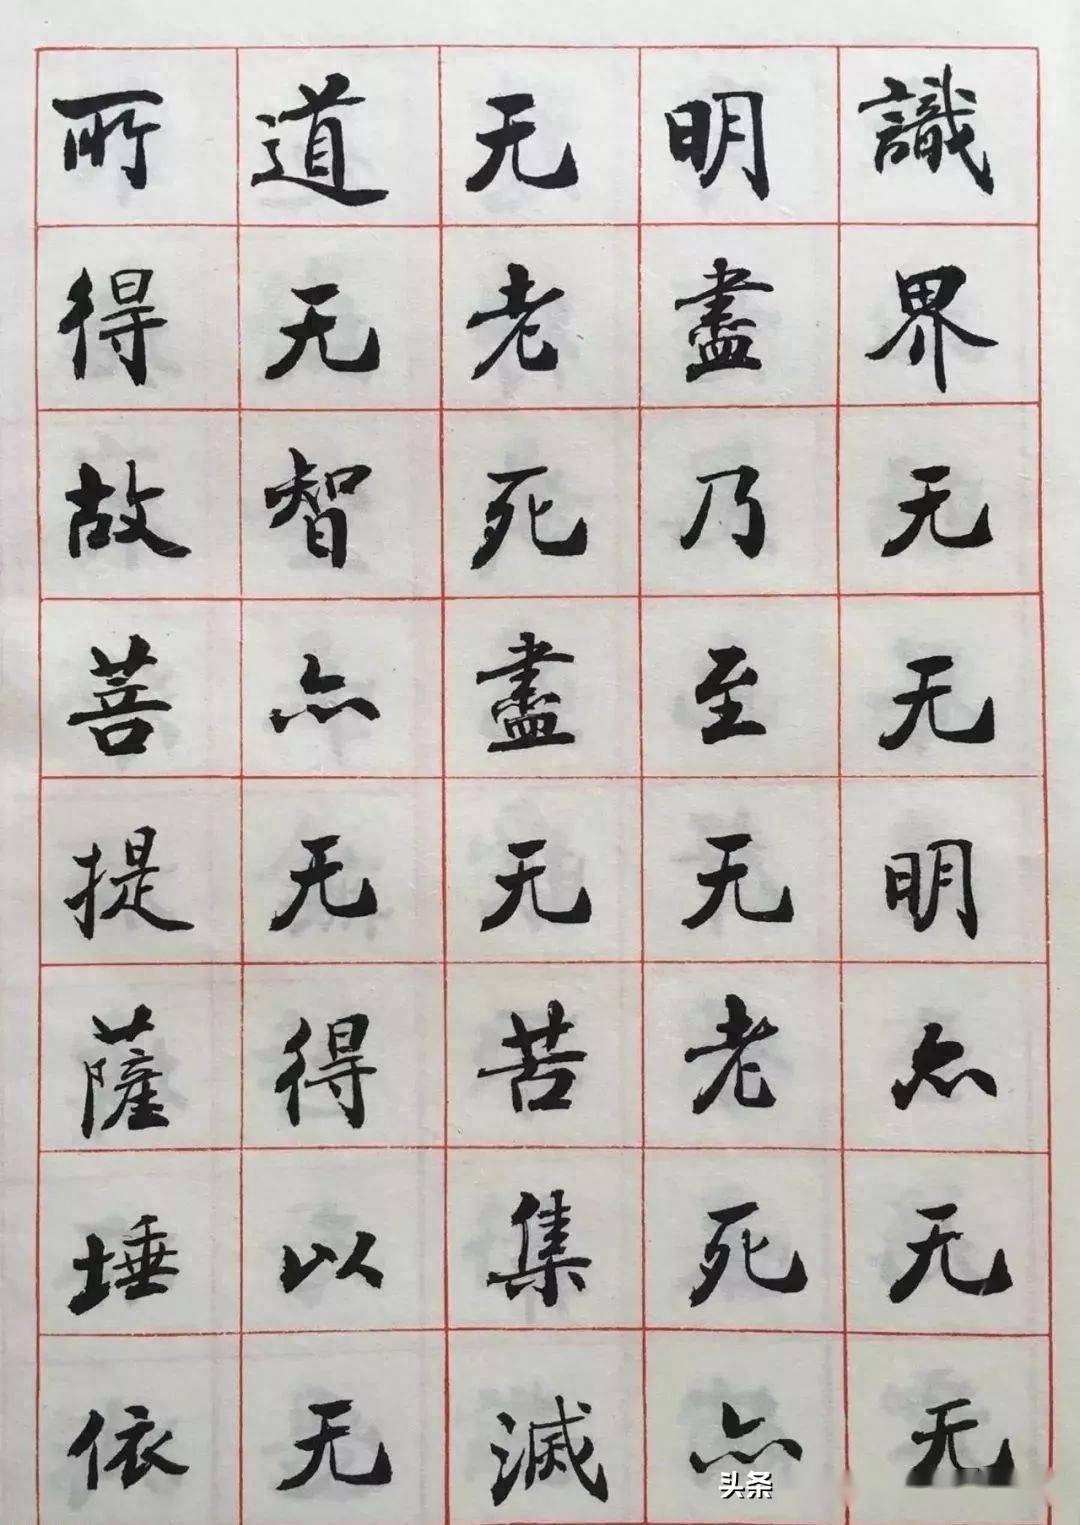 識界无无明亦无无
明盡乃至无老死亦
无老死盡无苦集滅
道无智亦无得以无
所得故菩提薩埵依
头条